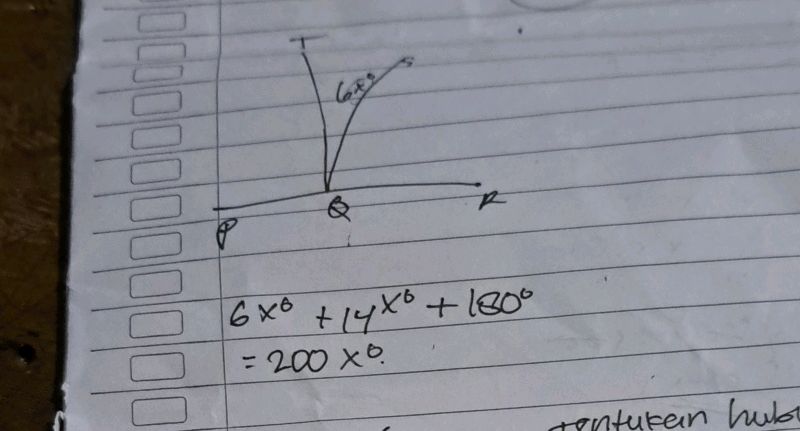 T
S
6x°
P
Q
R
6x° + 14x° + 180°
= 200 x°.
tentukan hubu